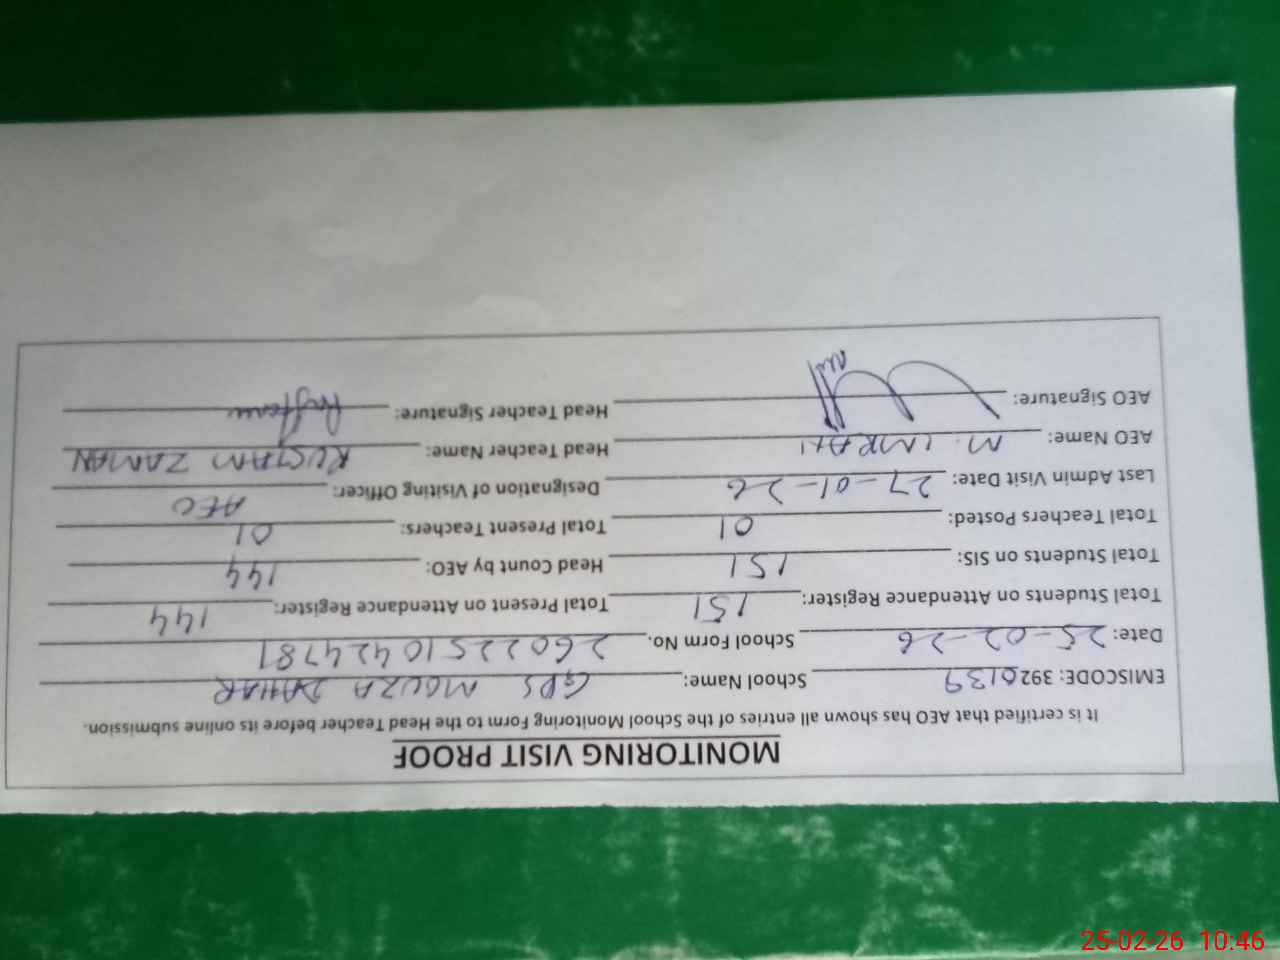 MONITORING VISIT PROOF
It is certified that AEO has shown all entries of the School Monitoring Form to the Head Teacher before its online submission.
EMISCODE: 3920139 School Name: GPS MOUZA DAHAR
Date: 25-02-26 School Form No. 26022510424781
Total Students on Attendance Register: 151 Total Present on Attendance Register: 144
Total Students on SIS: 151 Head Count by AEO: 144
Total Teachers Posted: 01 Total Present Teachers: 01
Last Admin Visit Date: 27-01-26 Designation of Visiting Officer: AEO
AEO Name: M. IMRAN Head Teacher Name: RUSTAM ZAMAN
AEO Signature: Head Teacher Signature:
25-02-26 10:46